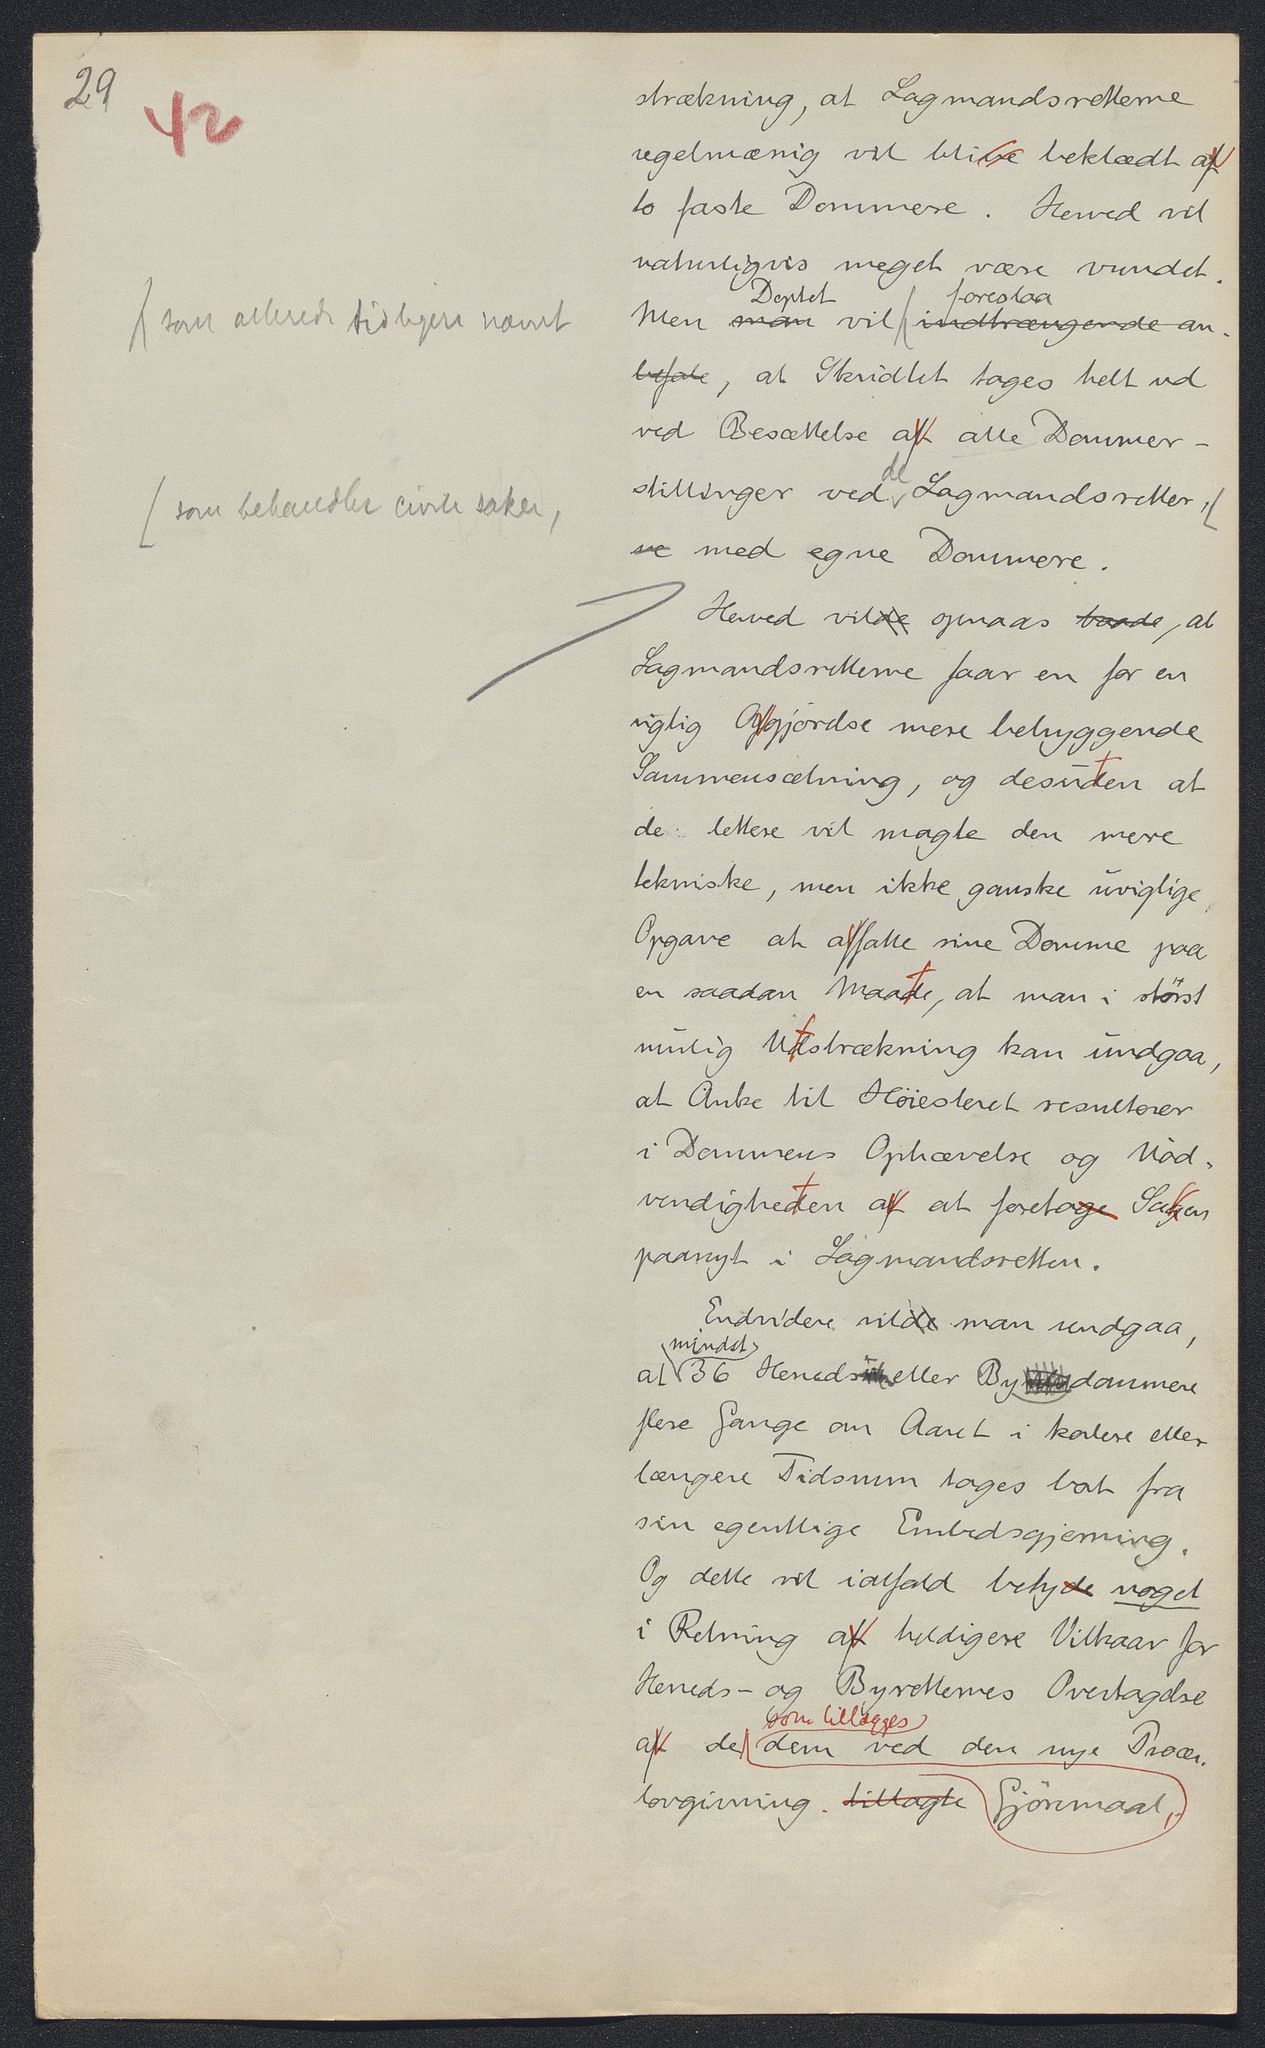 29
42
strækning, at Lagmandsretterne
regelmæssig vil blive beklædt af
to faste Dommere. Herved vil
naturligvis meget være vundet.
Deptet foreslaa
Men man vil indtrængende an-
som allerede tidligere nævnt
befale, at Skridtet tages helt ud
ved Besættelse af alle Dommer-
de
stillinger ved Lagmandsretter,
som behandler civile saker,
ne med egne Dommere.
Herved vilde opnaaes baade, at
Lagmandsretterne faar en for en
rigtig Afgjørelse mere betryggende
Sammensætning, og desuden at
de lettere vil magte den mere
tekniske, men ikke ganske uvigtige
Opgave at affatte sine Domme paa
en saadan Maade, at man i størst
mulig Udstrækning kan undgaa,
at Anke til Høiesteret resulterer
i Dommens Ophævelse og Nød-
vendigheden af at foretage Sagen
paanyt i Lagmandsretten.
Endvidere vilde man undgaa,
mindst
at 36 Herreds eller By dommere
flere Gange om Aaret i kortere eller
længere Tidsrum tages bort fra
sin egentlige Embedsgjerning.
Og dette vil ialfald betyde noget
i Retning af heldigere Vilkaar for
Herreds- og Byretternes Overtagelse
som tillægges
af de dem ved den nye Proces-
lovgivning tillagte Gjøremaal.